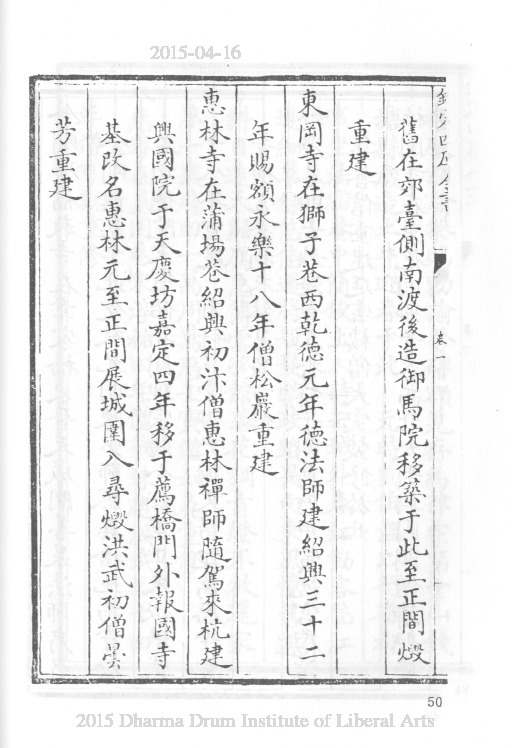 2015-04-16
欽定四庫全書
卷一
舊在郊臺側南渡後造御馬院移築于此至正間燬
重建
東岡寺在獅子巷西乾德元年德法師建紹興三十二
年賜額永樂十八年僧松巖重建
惠林寺在蒲場巷紹興初汴僧惠林禪師隨駕來杭建
興國院于天慶坊嘉定四年移于薦橋門外報國寺
基改名惠林元至正間展城圍入尋燬洪武初僧曇
芳重建
50
2015 Dharma Drum Institute of Liberal Arts